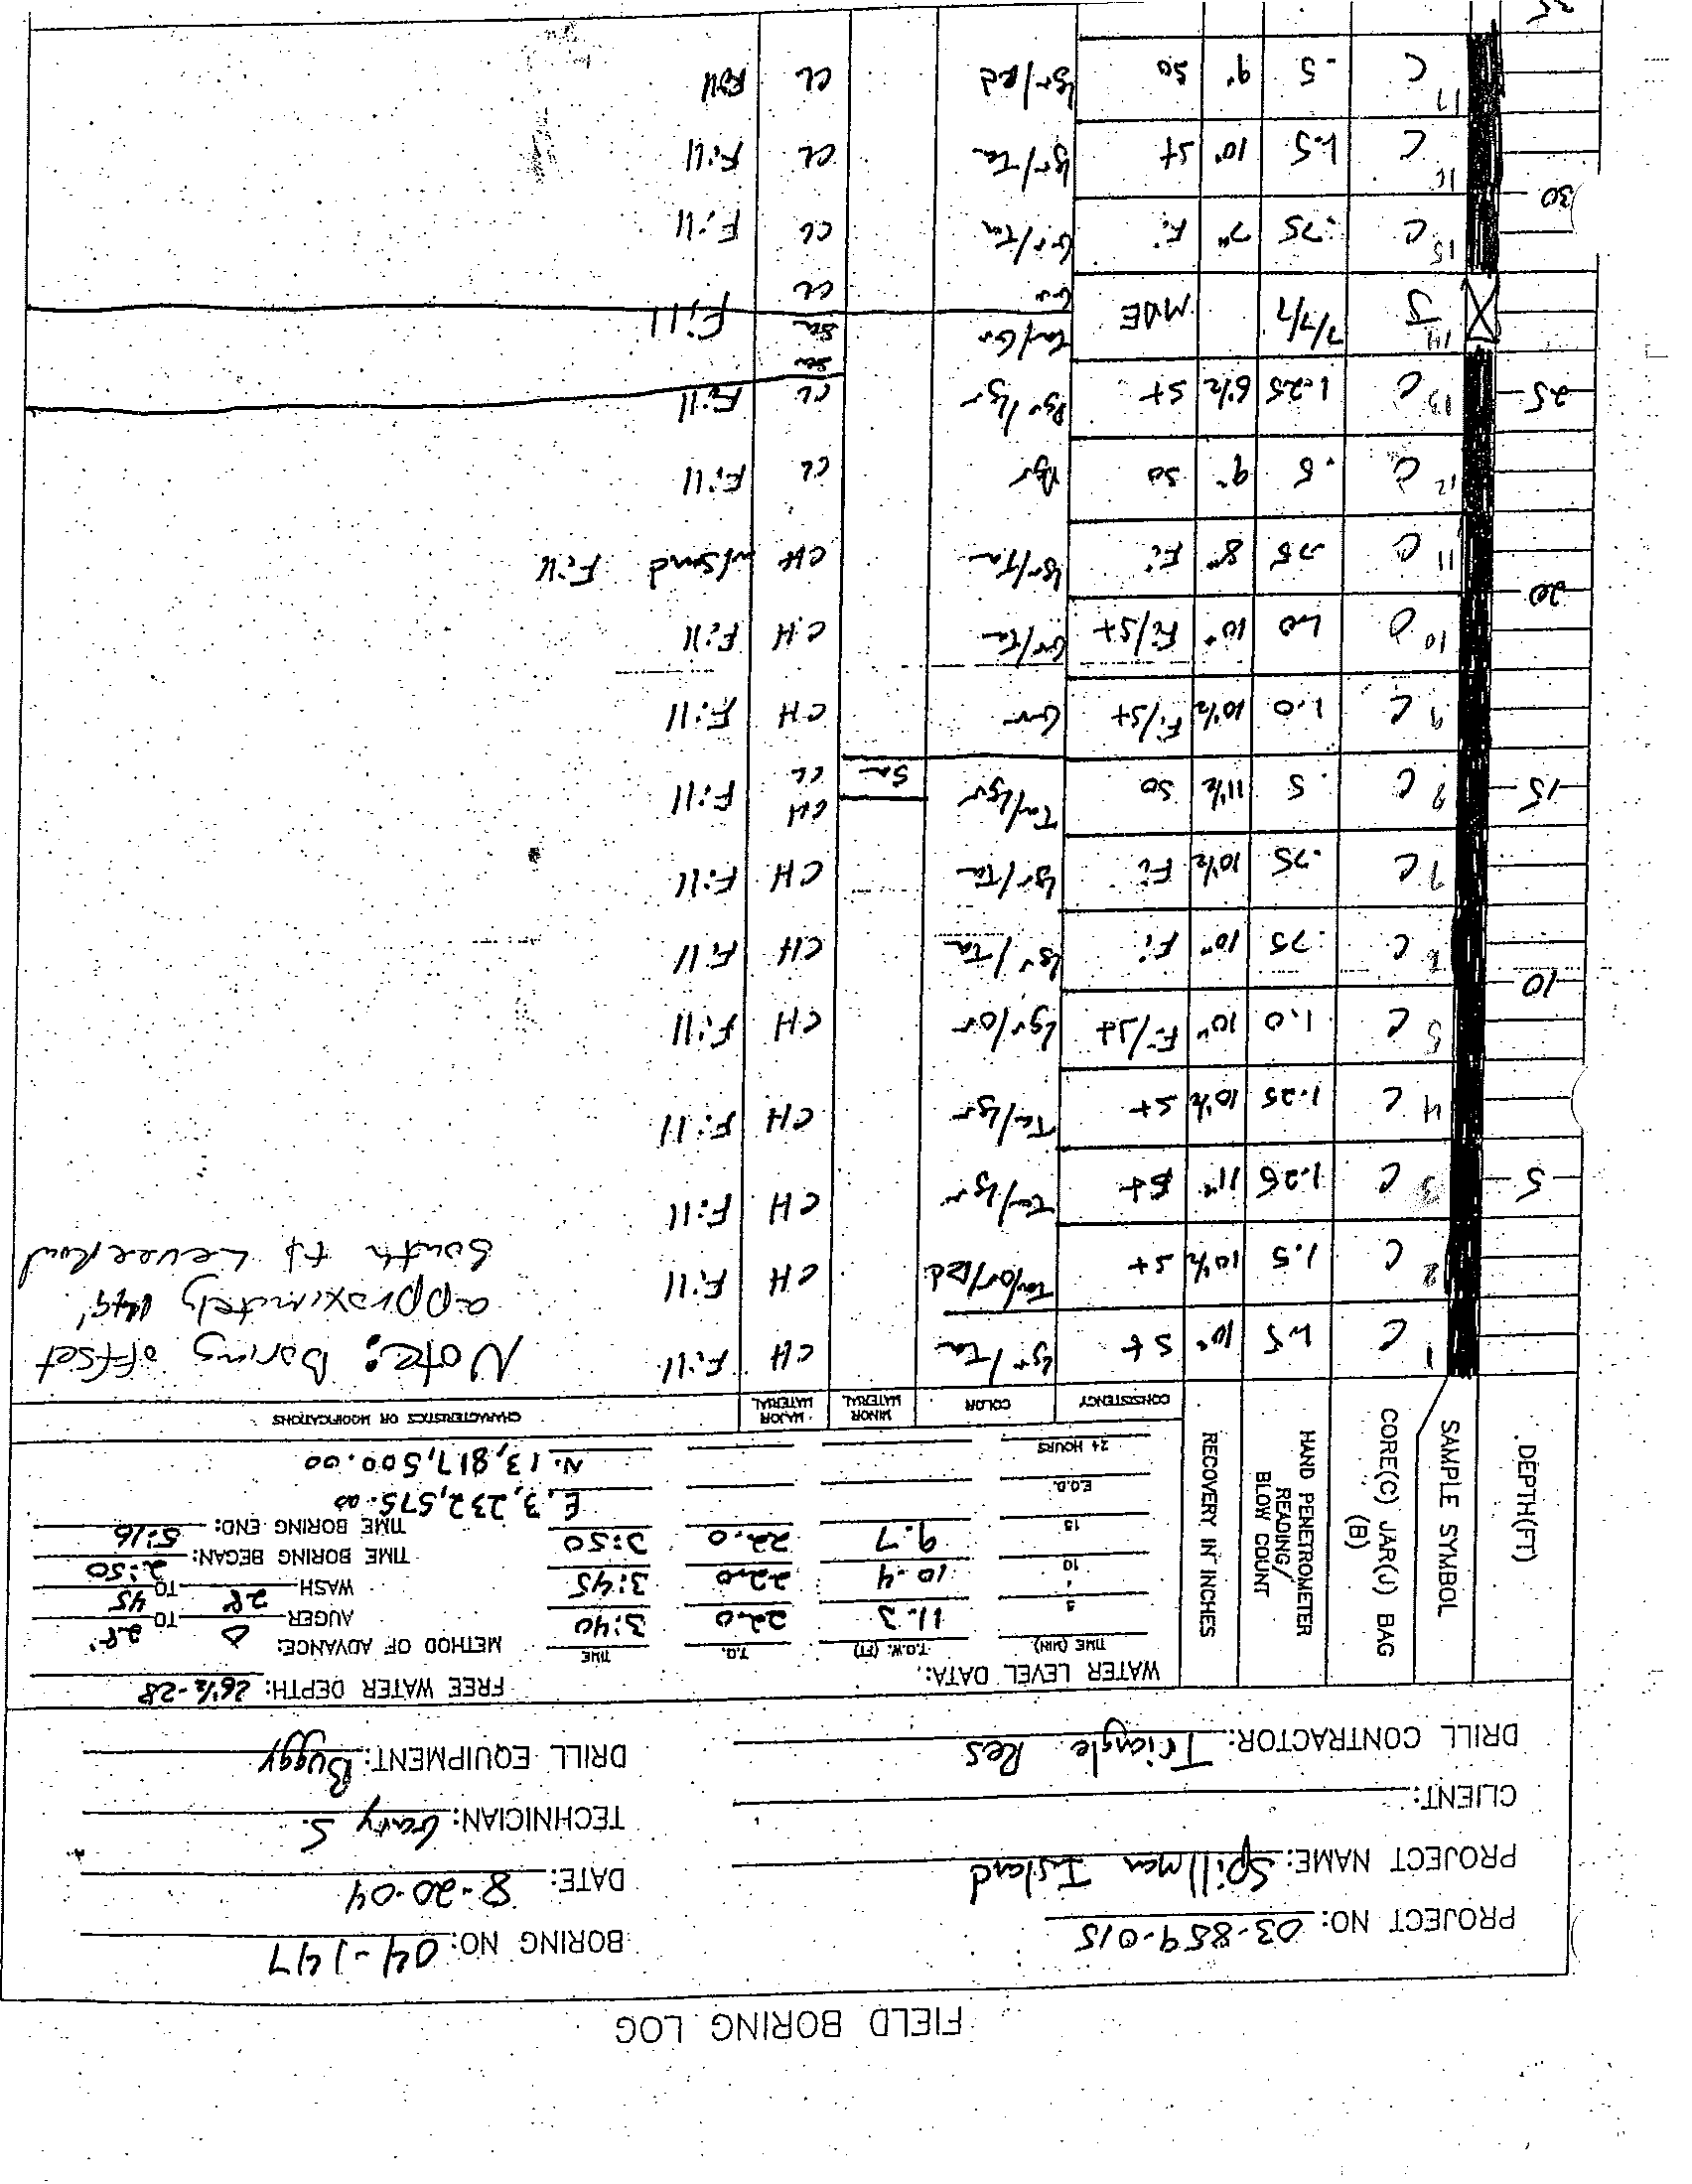 FIELD BORING LOG
PROJECT NO: 03-859-015 BORING NO: 04-147
PROJECT NAME: Spillman Island DATE: 8-20-04
CLIENT: TECHNICIAN: Gary S.
DRILL CONTRACTOR: Triangle Res DRILL EQUIPMENT: Buggy
DEPTH(FT)
SAMPLE SYMBOL
CORE(C) JAR(J) BAG (B)
HAND PENETROMETER READING/ BLOW COUNT
RECOVERY IN INCHES
WATER LEVEL DATA: FREE WATER DEPTH: 26½-28
TIME (MIN) T.O.W. (FT) T.D. TIME METHOD OF ADVANCE:
5 11.3 22.0 3:40 AUGER 0 TO 28'
10 10.4 22.0 3:45 WASH 28 TO 45
15 9.7 22.0 3:50 TIME BORING BEGAN: 2:50
TIME BORING END: 5:16
E.O.B. E. 3,232,575.00
24 HOURS N. 13,817,500.00
CONSISTENCY COLOR MINOR MATERIAL MAJOR MATERIAL CHARACTERISTICS OR MODIFICATIONS
1 C 1.5 10" St Lgr/Ta CH Fill
Note: Boring offset
approximately
South of Levee Road
2 C 1.5 10½ St Ta/or/Rd CH Fill
5 3 C 1.25 11" St Ta/Lgr CH Fill
4 C 1.25 10½ St Ta/Lgr CH Fill
5 C 1.0 10" Fi/St Lgr/or CH Fill
10 6 C .75 10" Fi Lgr/Ta CH Fill
7 C .75 10½ Fi Lgr/Ta CH Fill
15 8 C .5 11½ So Ta/Lgr Sa CH CL Fill
9 C 1.0 10½ Fi/St Gr CH Fill
10 C 1.0 10" Fi/St Gr/Ta CH Fill
20 11 C .75 8" Fi Lgr/Ta CH w/Sand Fill
12 C .5 9" So CL Fill
25 13 C 1.25 6½ St CL Fill
Sa
14 J 7/7/7 MDE Ta/Gr Sa Fill
Gr CL
15 C .75 7" Fi Gr/Ta CL Fill
30 16 C 1.5 10" St Lgr/Ta CL Fill
17 C .5 9" So Lgr/Rd CL Fill